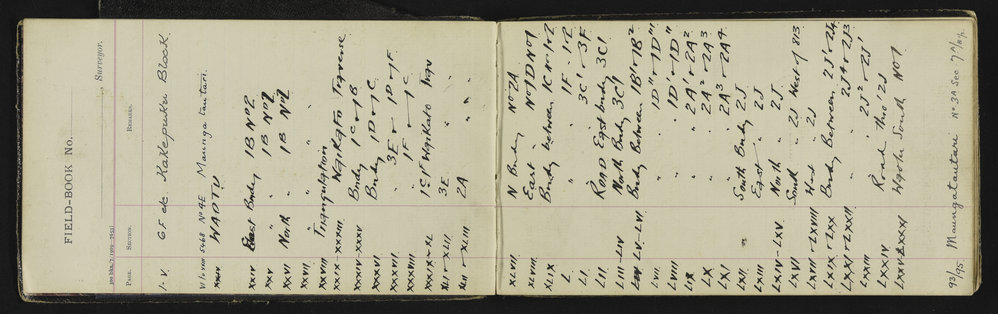 FIELD-BOOK No.
Surveyor.
PAGE. SECTION. REMARKS.
1-V. 6 F etc Kakepuku Block
VI-VIII 5468 No 4E Maungatautari.
XXIV WAOTU
XXIV East Bndy 1B No2
XXV " " 1B No
XXVI North " 1B No
XXVII " "
XXVIII Triangulation
XXIX-XXXIII Waikato Traverse
XXXIV-XXXV Bndy 1C & 1B
XXXVI Bndy 1D & 1C
XXXVII " 3E & 1D & 1F
XXXVIII " 1F & 1C
XXXIX & XL 1C1 Waikato
XLI & XLII 3E " "
XLII & XLIII 2A " "
XLVII N Bndy No 2A
XLVIII East " No 1D No1
XLIX Bndy between 1C & 1-2
L " " 1F - 1-2
LI " " 3C1 - 3F
LII ROAD East bndy 3C1
LIII-LIV North Bndy 3C1
LV-LVI Bndy Between 1B1 & 1B2
LVII " " 1D" & 1D"
LVIII " " 1D1 & 1D"
LIX " " 2A1 & 2A2
LX " " 2A2 & 2A3
LXI " " 2A3 & 2A4
LXII South Bndy 2J
LXIII East " 2J
LXIV-LXV North " 2J
LXVI South " 2J West of 813
LXVII & LXVIII West " 2J
LXIX & LXX Bndy Between 2J1 - 2J4
LXXI & LXXII " " 2J4 & 2J3
LXXIII " " 2J2 - 2J1
LXXIV Road thro' 2J
LXXV-LXXXI South No 1
93/95. Maungatautari No 3A Sec